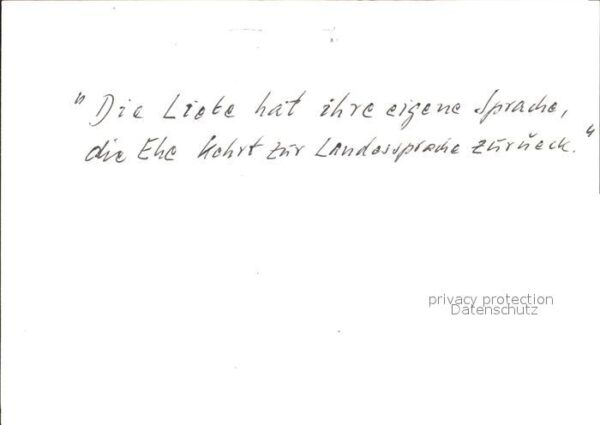 "Die Liebe hat ihre eigene Sprache,
die Ehe kehrt zur Landessprache zurück."
privacy protection
Datenschutz